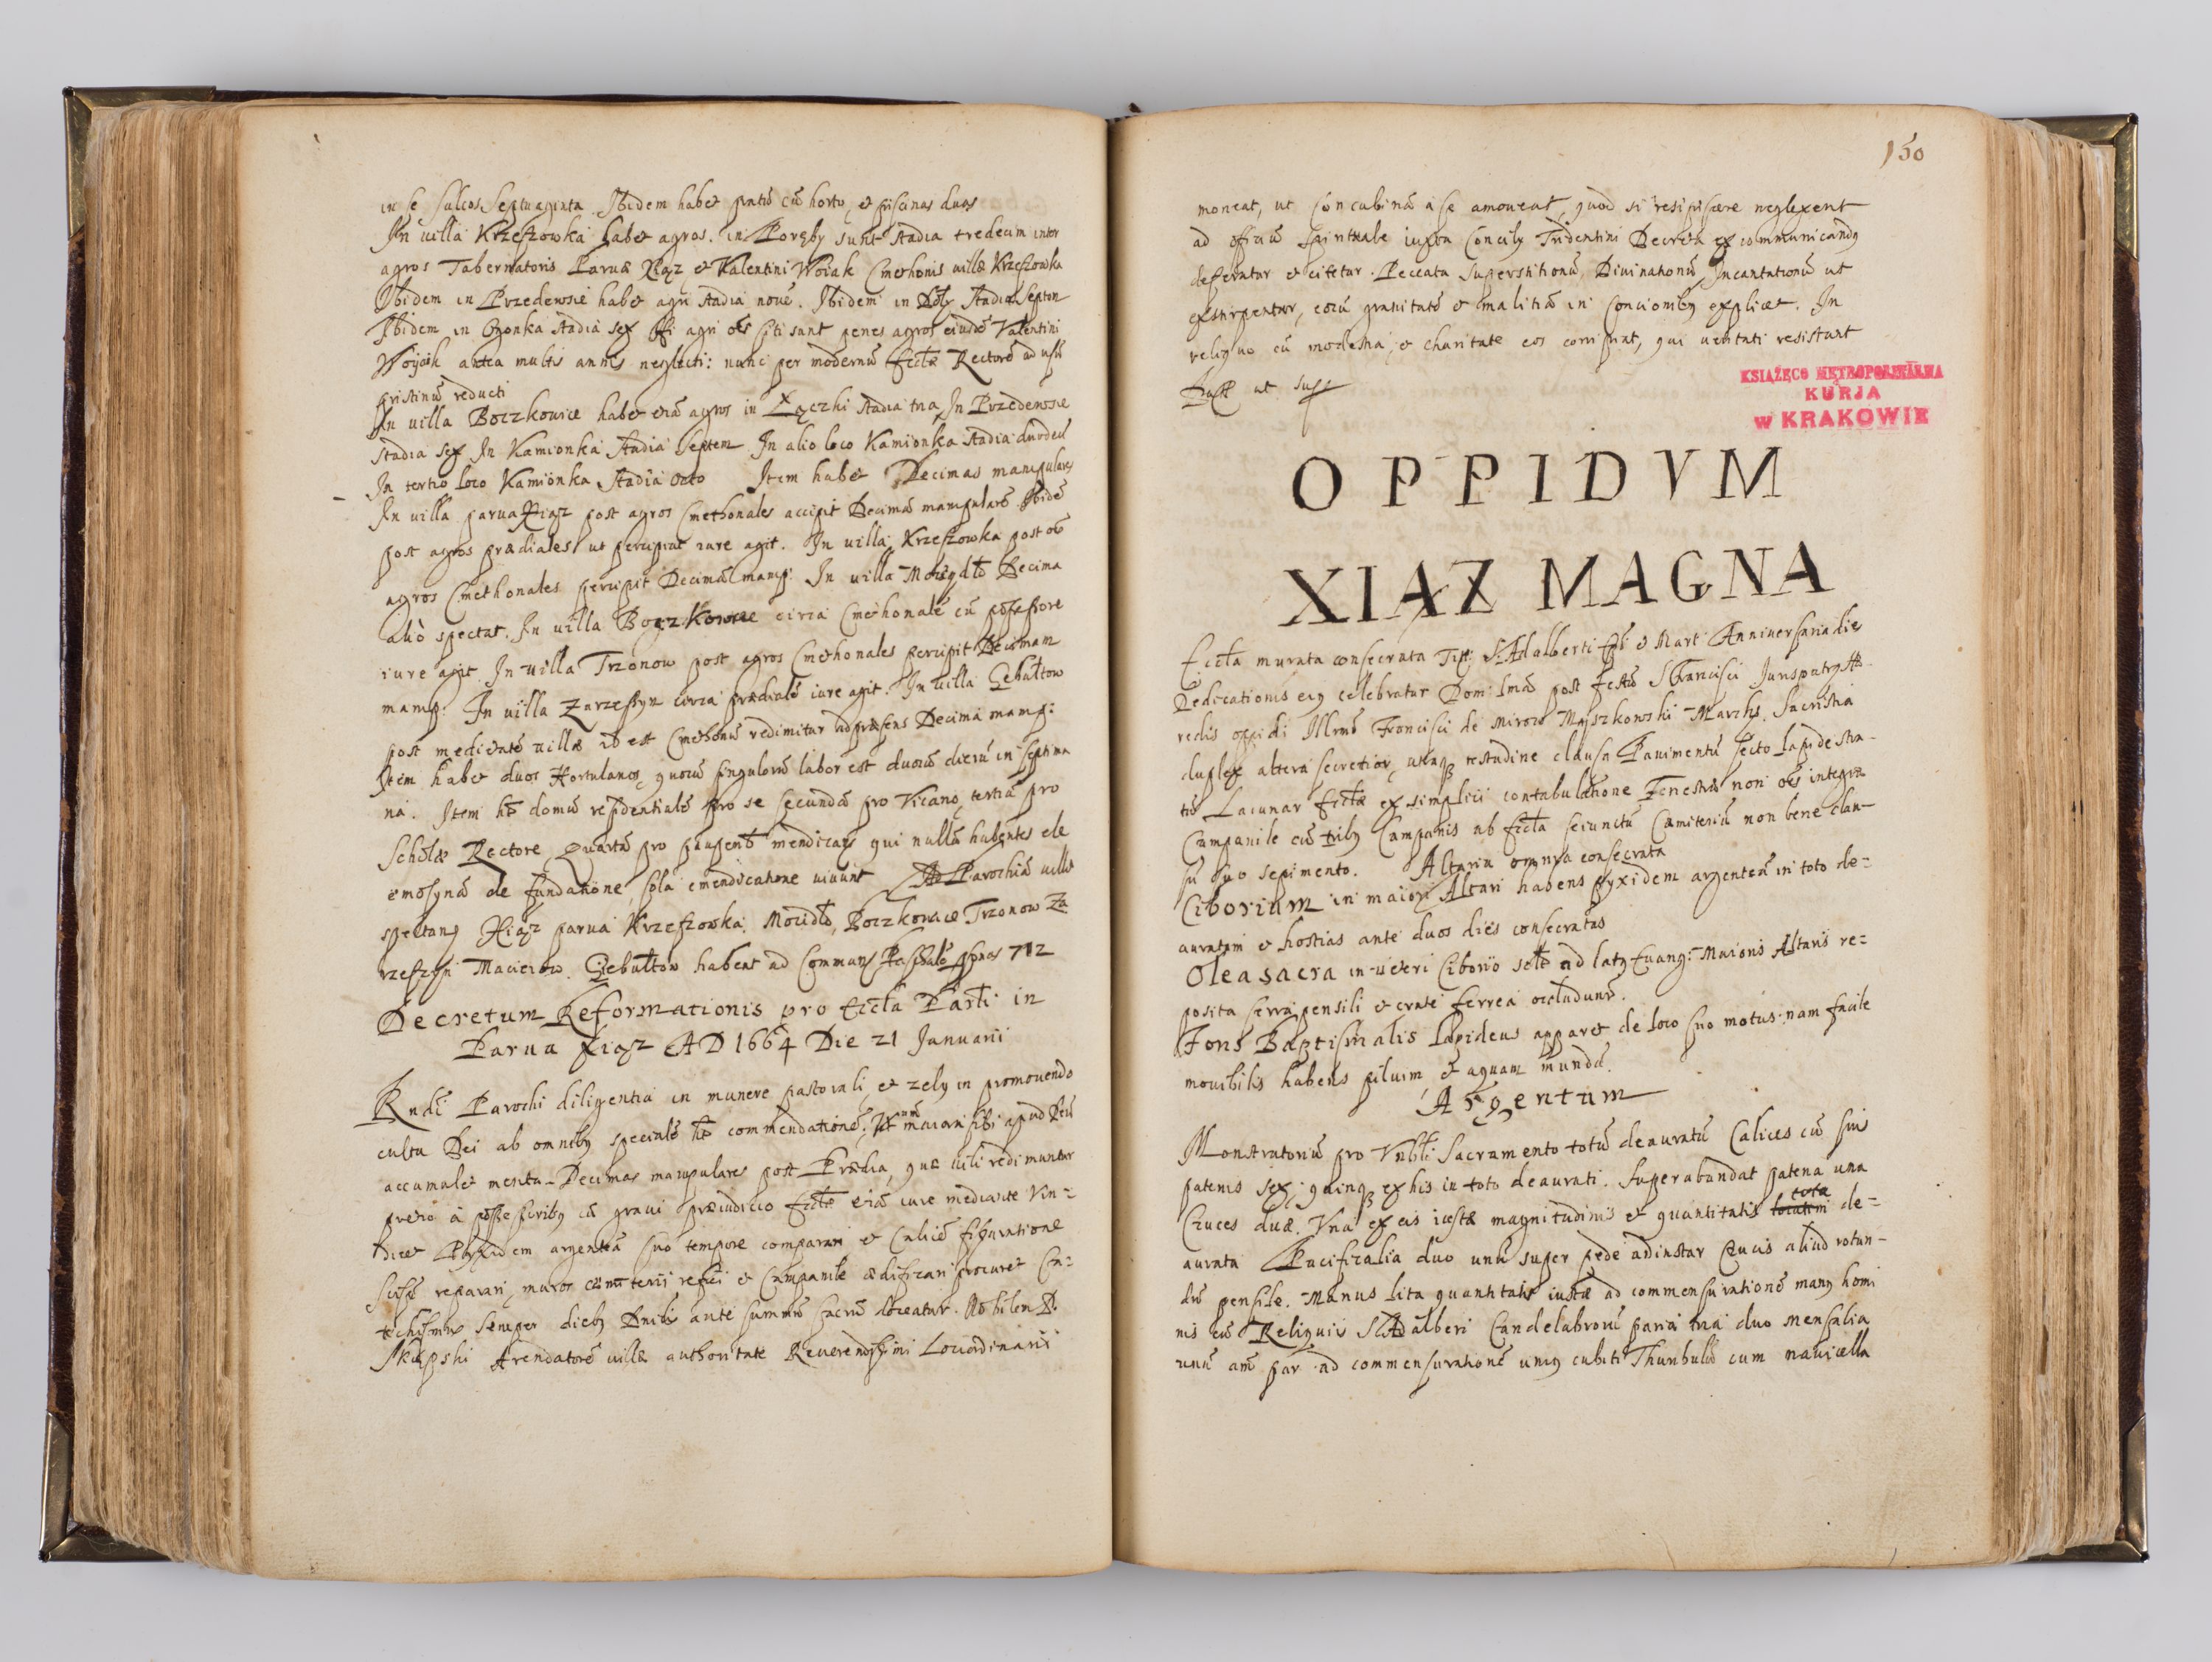 in se sulcos Septuaginta. Ibidem habet pratũ cũ horto, et piscinas duas
In villa Krzeszowka habet agros. in Poręby sunt stadia tredecim inter
agros Tabernatoris Parvæ Xiąz et Valentini Woiak Cmethonis villæ Krzeszowka
Ibidem in Przedewsie habet agri stadia novẽ. Ibidem in Doły Stadia Septem
Ibidem in stadia sex Hi agri oẽs siti sunt penes agros eiusdẽ Valentini
Woyciak antea multis annis neglecti: nunc per modernũ Ecclæ Rectorẽ ad usũ
pristinũ reducti
In villa Boczkowice habet etiã agros in Łączki stadia tria, In Przedewsie
stadia sex In Kamionka stadia Septem In alio loco Kamionka stadia duodecĩ
In tertio loco Kamionka Stadia octo Item habet Decimas manipulares
In villa parva Xiąz post agros Cmethonales accipit Decimã manipularẽ Ibidẽ
post agros prædiales ut percipiat iure agit. In villa Krzeszowka post oẽs
agros Cmethonales percipit Decimã manip: In villa Decima
aliò spectat. In villa Boczkowice circa Cmethonalẽ cũ possessore
iure agit In villa Trzonow post agros Cmethonales percipit Decimam
manip: In villa Zarzeszyn circa prædialẽ iure agit. In villa Gebułtow
post medietatẽ villæ id est Cmethonũ redimitur ad præsens Decima manip:
Item habet duos Hortulanos, quorũ singulorũ labor est duorũ dierũ in septima
na. Item hẽt domũ residentialẽ pro se secundã pro Vicario, tertiã pro
Scholæ Rectore quartã pro pauperib mendicatis qui nullã habentes ele
emosynã de fundatione, sola emendicatione vivunt Ad Parochiã villæ
spectant Xiąz parva Krzeszowka, Mocidło, Boczkowice Trzonow Za
rzeszyn Macieiow Gebułtow habent ad Communẽ Paschalẽ psonas 712
Decretum Reformationis pro Eccla Parli in
Parva Xiąz AD 1664 Die 21 Januarii
Rndi Parochi diligentia in munere pastorali, et zelus in promovendo
cultu Dei ab omnibus specialẽ hẽt commendationẽ: Ut maiora sibi apud Deũ
accumulet merita Decimas manipulares post Prædia, quæ vili redimuntur
pretio à possessoribus cũ gravi præiudicio Ecclæ etiã iure mediante vin-
dicet Pyxidem argenteã suo tempore comparari et Calicẽ figuratione
reparari, muros cæmiterii refici et Campanile ædificari procuret Ca-
techismus semper diebus Dnicis ante summũ sacrũ doceatur. Nobilem D.
Skąpski Arendatorẽ villæ authoritate Reverendissimi Loci Ordinarii
150
moneat, ut Concubinã à se amoveat, quod si resipiscere neglexerit
ad officiũ Spirituale iuxta Concily Tridentini Decreta excommunicandus
deferatur et citetur. Peccata superstitionũ, Divinationũ, Incantationũ ut
exstirpentur, eorũ gravitatẽ et malitiã in Concionibus explicet. In
reliquo cũ modestia, et charitate eos corripiat, qui veritati resistunt
ut sup
KSIĄŻĘCO METROPOLITALNA
KURJA
w KRAKOWIE
OPPIDVM
XIAZ MAGNA
Eccla murata consecrata Tit: S. Adalberti Epi et Mart: Anniversaria dies
Dedicationis eius celebratur Dom: Imã post festũ S Francisci Jurispatrus Hæ-
redis oppidi Illrmi Francisci de Mirow Myszkowskii Marchis. Sacristia
duplex altera secretior, utraq testudine clausa Pavimentũ secto lapide stra-
tũ Lacunar Ecclæ ex simplici contabulatione Fenestræ non oẽs integræ
Campanile cũ tribus Campanis ab Eccla seiunctũ Cæmiteriũ non bene clau-
sũ suo sepimento. Altaria omnia consecrata
Ciborium in maiori Altari habens pyxidem argenteã in toto de-
auratam et hostias ante duos dies consecratas
Olea sacra in veteri Ciborio scte ad latus Evang: Maioris Altaris re-
posita serra pensili et crate ferrea occludunr.
Fons Baptismalis Lapideus apparet de loco suo motus: nam facile
movibilis habens pilvim, et aquam mundã.
Argentum
Monstratoriũ pro Vnbli Sacramento totũ deauratũ Calices cũ suis
patenis sex, quinq ex his in toto deaurati. Superabundat patena una
Cruces duæ. Una ex eis iustæ magnitudinis et quantitatis tota de-
aurata Pacificalia duo unũ super pede ad instar Crucis aliud rotun-
dũ pensile. Manus lita quantitatis iustæ ad commensurationẽ manus homi
nis cũ Reliquiis S. Adalberi Candelabrorũ paria tria duo mensalia
unũ aut par ad commensurationẽ unius cubiti Thuribulũ cum navicella